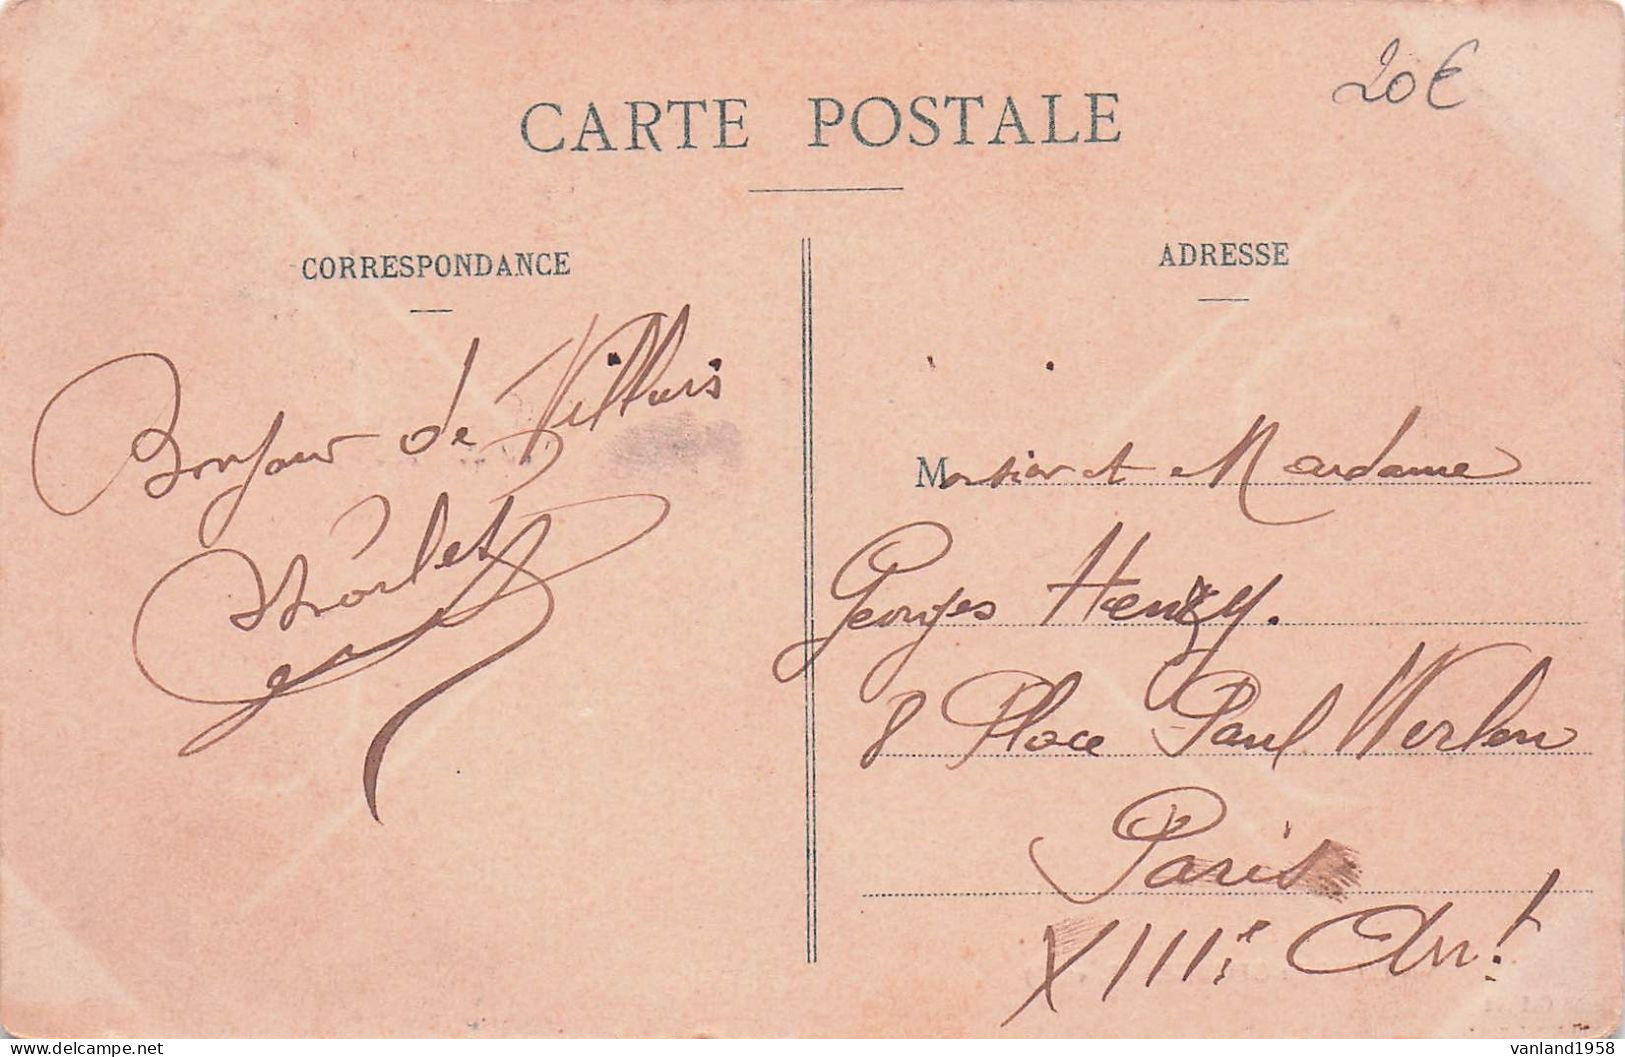 CARTE POSTALE
20€
CORRESPONDANCE
Bonjour de Villiers
ADRESSE
Monsieur et Madame
Georges Henry.
8 Place Paul Verlen
Paris
XIIIe Arrt
vanland1958